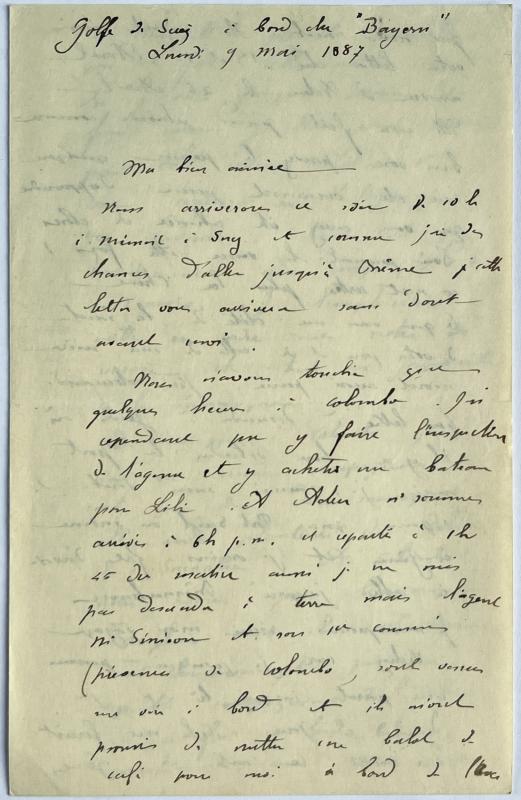 Golfe de Suez à bord du "Bayern"
Lundi 9 mai 1887
Ma bien aimée
Nous arriverons ce soir de 10 h
à minuit à Suez et comme j'ai des
chances d'aller jusqu'à cette
lettre vous arrivera sans doute
avant moi.
Nous n'avons touché que
quelques heures à Colombo. J'ai
cependant pu y faire l'inspection
de l'agence et y acheter un bateau
pour Lili. A Aden ns sommes
arrivés à 6h p.m. et repartis à 1h
45 du matin aussi je ne suis
pas descendu à terre mais l'agent
Mr et son 1er commis
( de Colombo, sont venus
me voir à bord et ils m'ont
promis de mettre un ballot de
café pour moi à bord de